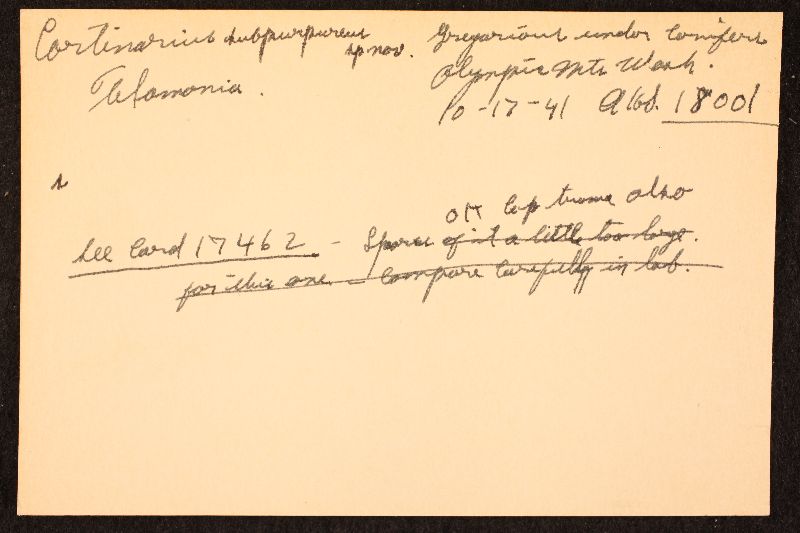 Cortinarius subpurpureus
sp nov.
Telamonia.
Gregarious under conifers
Olympic Mts Wash.
10-17-41 Abd. 18001
s
OK Cap trama also
See Card 17462 - Spores of it a little too large.
for this one - Compare carefully in lab.